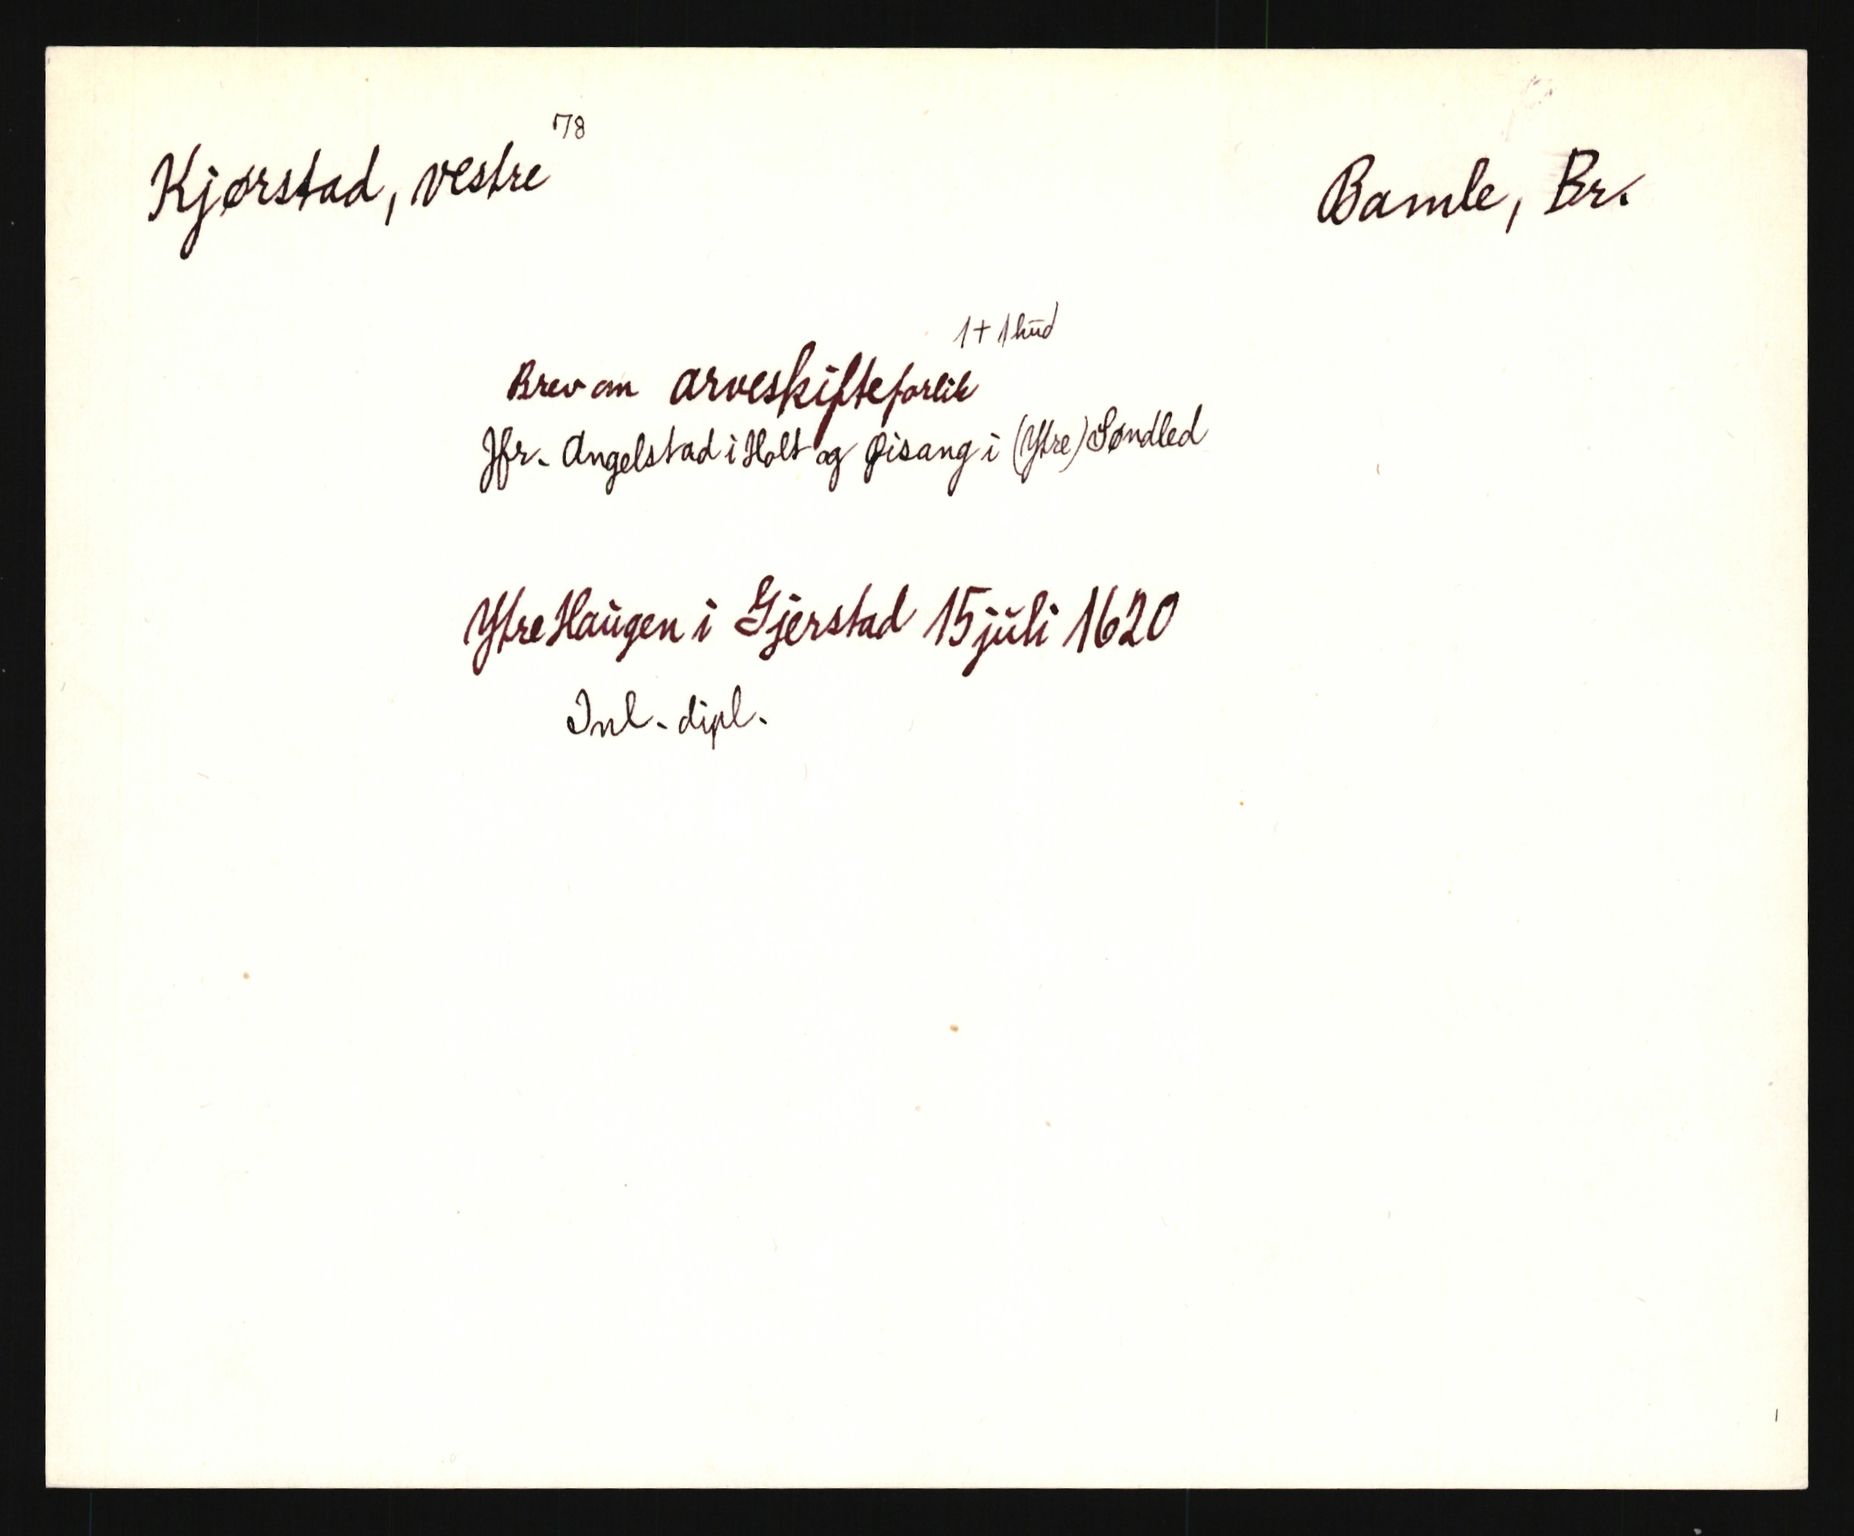 Kjørstad, vestre 78
Bamle, Br.
1 + 1 hud
Brev om arveskifteforlik
Jfr. Angelstad i Holt og Øisang i (Ytre) Søndled
Ytre Haugen i Gjerstad 15 juli 1620
Inl. dipl.